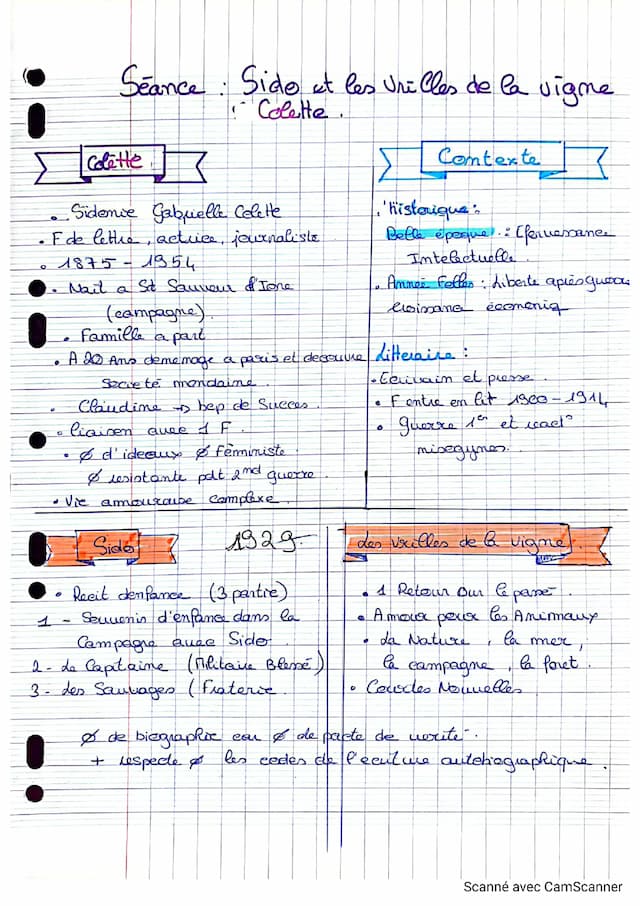 Séance : Sido et les Vrilles de la vigne
Colette.
Colette
. Sidonie Gabrielle Colette
. F de lettre, actrice, journaliste
. 1875 - 1954
. Nait a St Sauveur d'Ione
(campagne)
. Famille a part
. A 20 Ans demenage a paris et decouvre
Societé mondaine.
. Claudine → bep de Succes.
. liaison avec 1 F.
. Ø d'ideaux Ø féministe
Ø resistante pdt 2nd guerre
. Vie amoureuse complexe
Contexte
. historique :
Belle époque : Effervessance
Intelactuelle.
. Année Folles : liberte après guerre
croissance économiq
litteraire :
. Ecrivain et presse.
. F entre en lit 1900 - 1914
. guerre 1er et react°
misogynes.
Sido 1929
. Recit d'enfance (3 partie)
1 - Souvenir d'enfance dans la
Campagne avec Sido
2 - Le Capitaine (Militaire Blessé)
3 - Les Sauvages (Fraterie.
Les Vrilles de la vigne
. 1 Retour sur le passé.
. Amour pour les Animaux
. La Nature, la mer,
la campagne, la foret.
. Courtes Nouvelles
Ø de biographie car Ø de pacte de verité.
+ respecte Ø les codes de l'ecriture autobiographique.
Scanné avec CamScanner